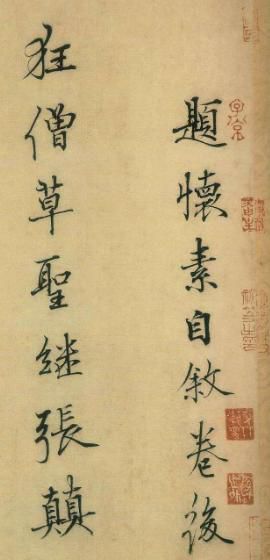 題懷素自敘卷後
狂僧草聖繼張顛